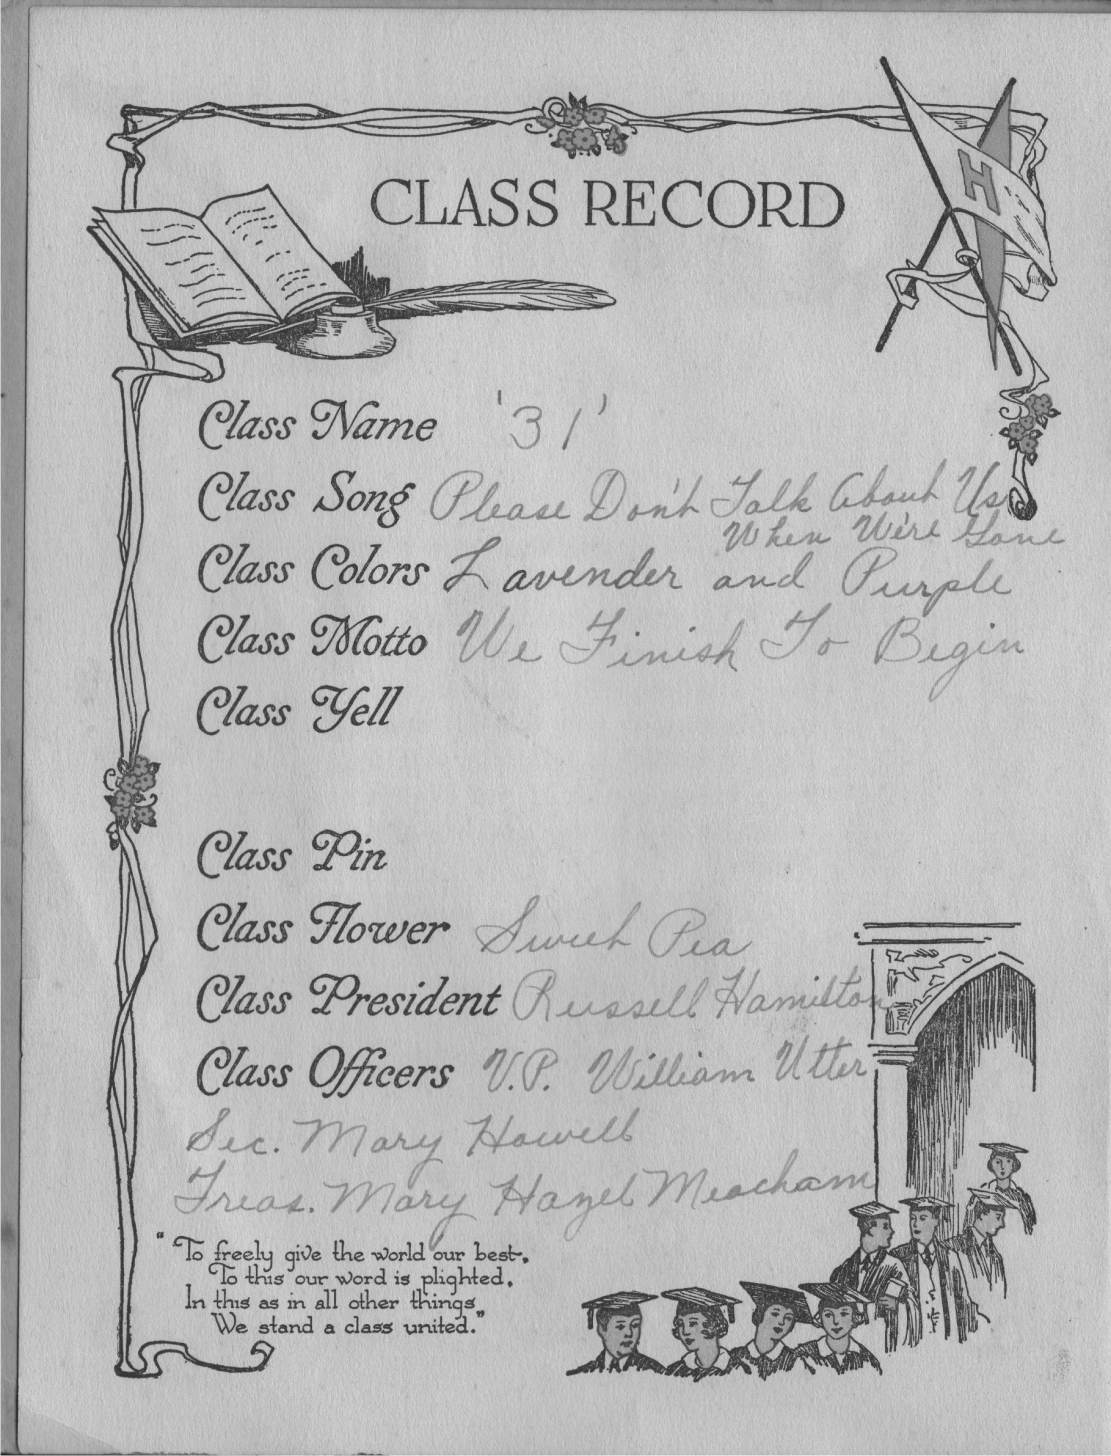 H
CLASS RECORD
Class Name '31'
Class Song Please Don't Talk About Us
When We're Gone
Class Colors Lavender and Purple
Class Motto We Finish To Begin
Class Yell
Class Pin
Class Flower Sweet Pea
Class President Russell Hamilton
Class Officers V.P. William Utter
Sec. Mary Howell
Treas. Mary Hazel Meacham
"To freely give the world our best,
To this our word is plighted,
In this as in all other things
We stand a class united."